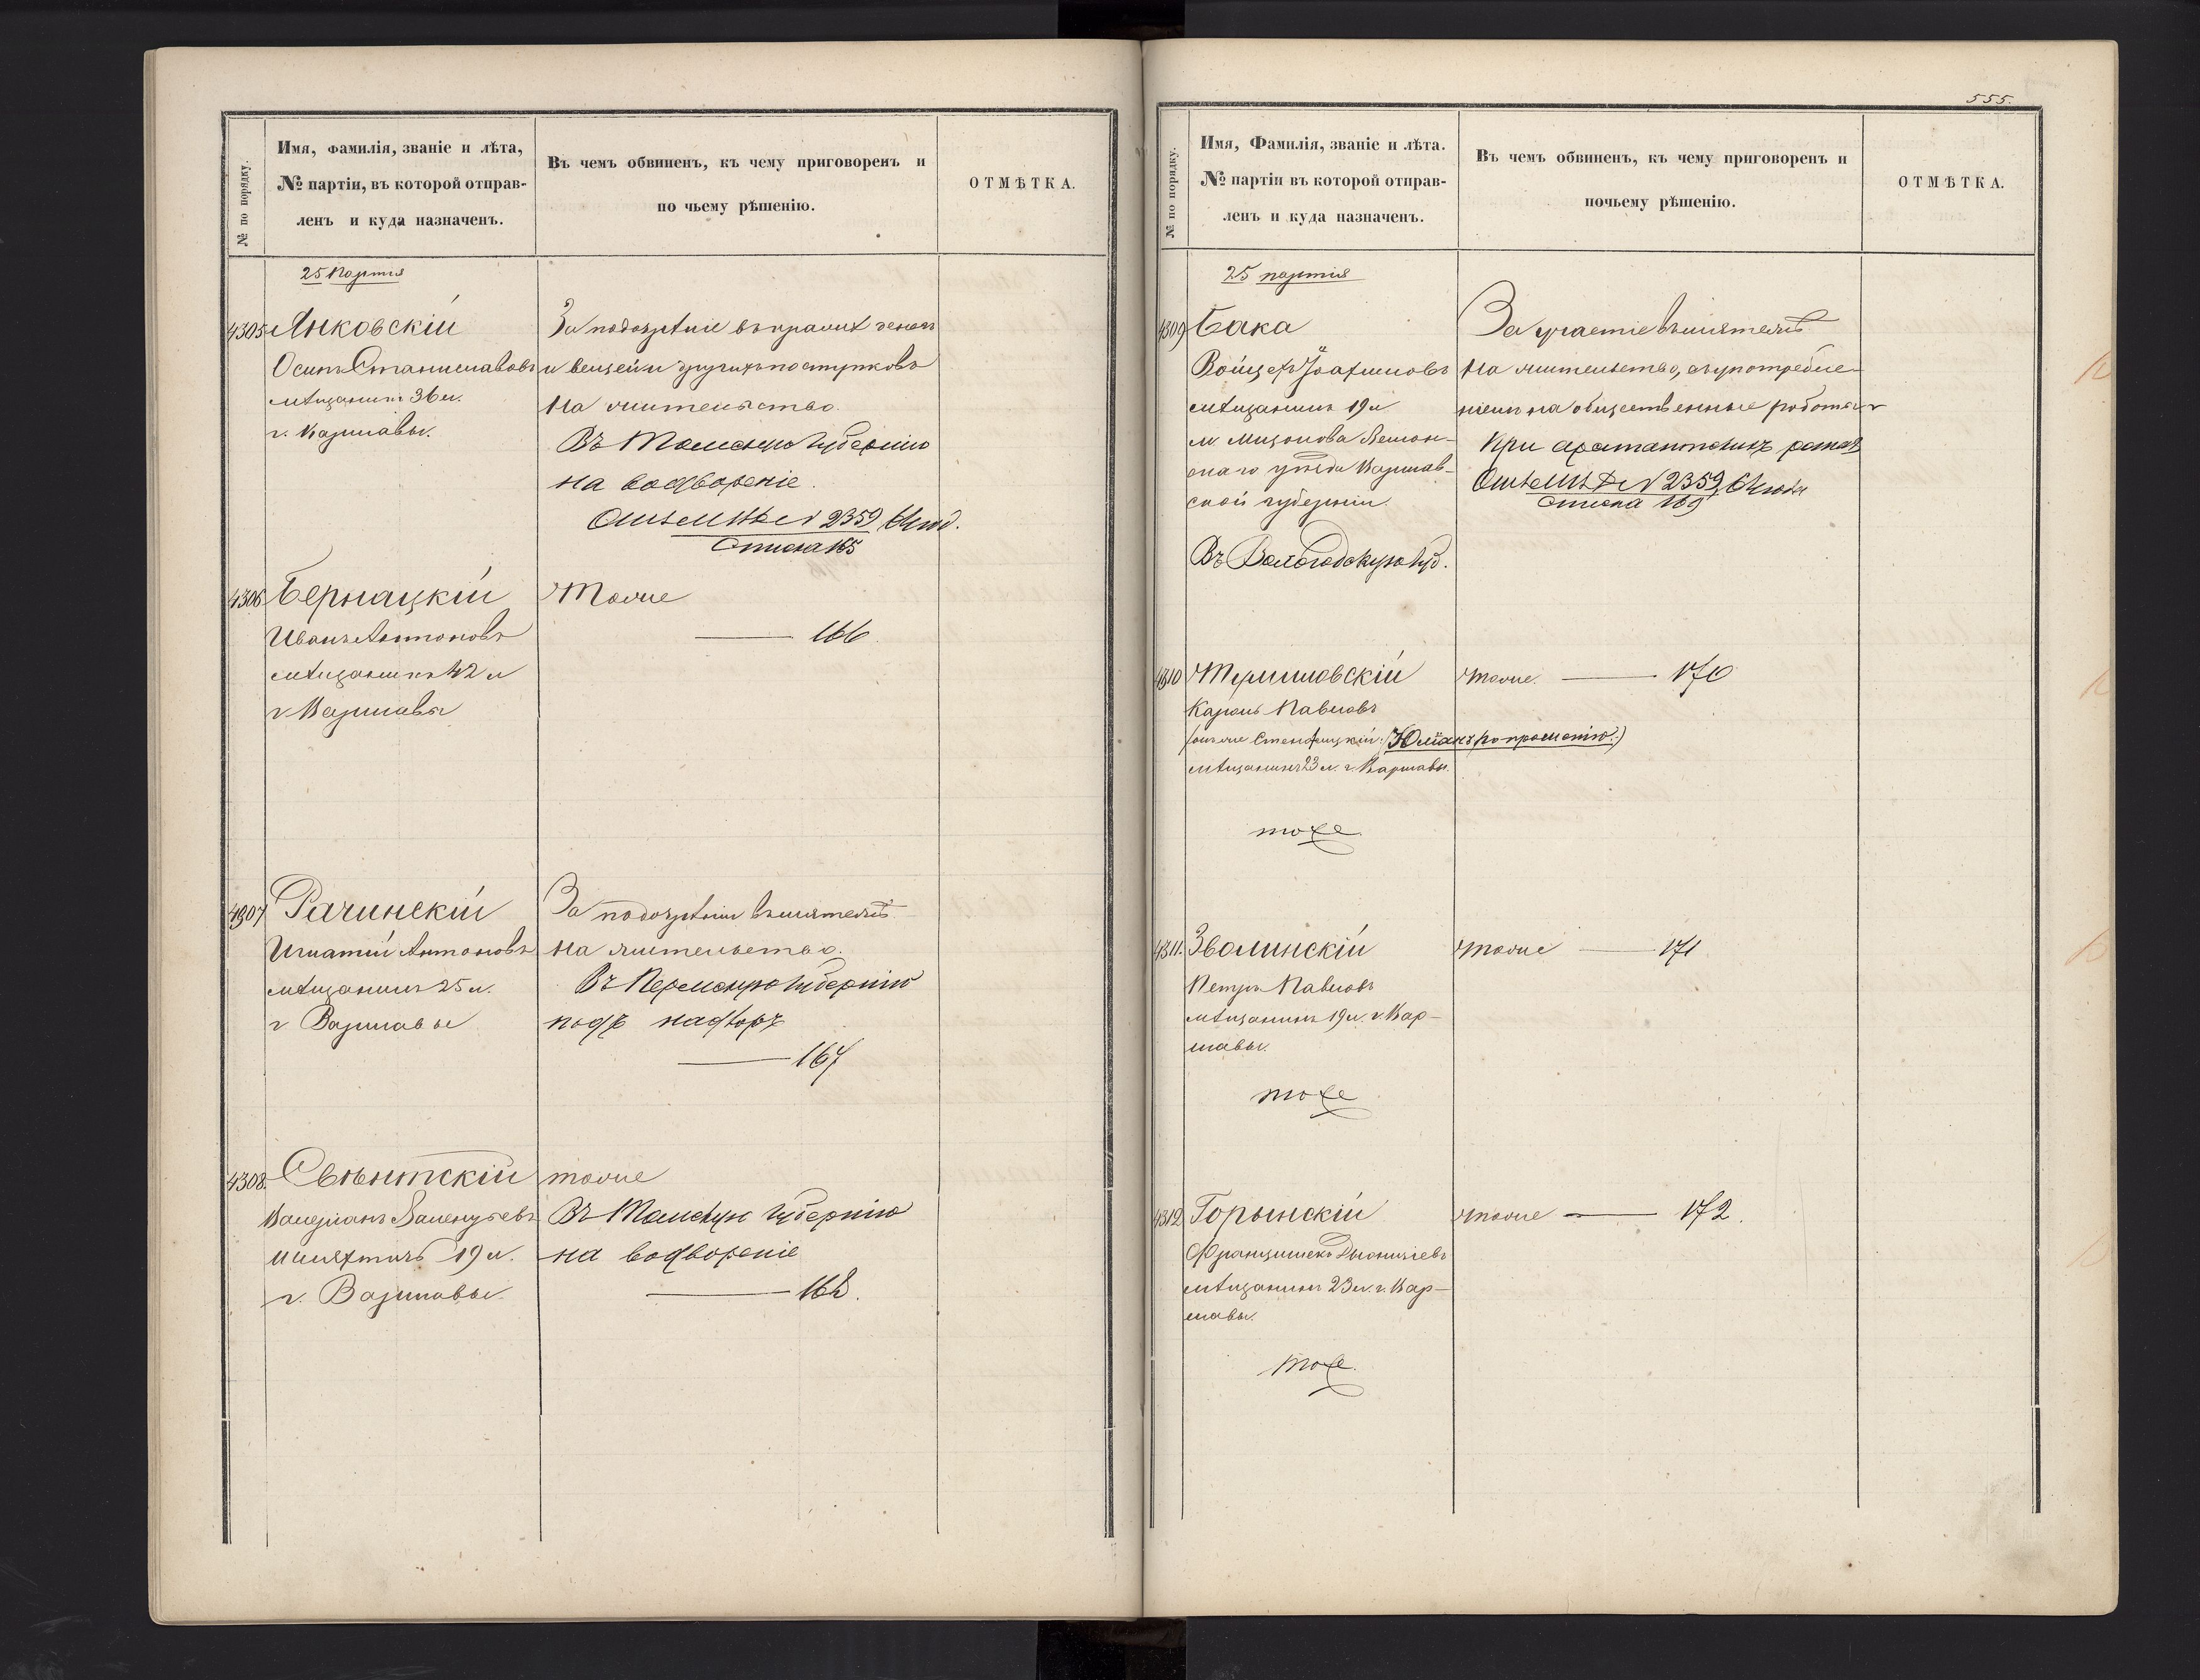 № по порядку.
Имя, фамилія, званіе и лѣта,
№ партіи, въ которой отправ-
ленъ и куда назначенъ.
Въ чемъ обвиненъ, къ чему приговоренъ и
по чьему рѣшенію.
ОТМѢТКА.
25 Партія
4305 Янковскій
Осипъ Станиславовъ
мѣщанинъ 36 л.
г. Варшавы.
За подозрѣніе въ кражѣ денегъ
и вещей и другихъ поступковъ
на жительство.
Въ Томскую Губернію
на водвореніе.
2359
Списка 165
4306 Бернацкій
Иванъ Антоновъ
мѣщанинъ 42 л
г Варшавы
Тоже
166
4307 Рачинскій
Игнатій Антоновъ
мѣщанинъ 25 л.
г Варшавы
За подозрѣніи въ мятежѣ
на жительство.
Въ Пермскую Губернію
подъ надзоръ
167
4308. Свѣнтскій
Валеріанъ
шляхтичъ 19 л.
г. Варшавы
тоже
Въ Томскую Губернію
на водвореніе
168.
555.
№ по порядку.
Имя, Фамилія, званіе и лѣта.
№ партіи въ которой отправ-
ленъ и куда назначенъ.
Въ чемъ обвиненъ, къ чему приговоренъ и
почьему рѣшенію.
ОТМѢТКА.
25 партія
4309 Бака
Войцехъ Іоахимовъ
мѣщанинъ 19 л
скаго уѣзда Варшав-
ской губерніи.
Въ Вологодскую Губ.
За участіе въ мятежѣ
на жительство, съ употребле-
ніемъ на общественные работы
при арестантскихъ ротахъ
2359
Списка 169
4310
Кароль Павловъ
Юліанъ по прошенію:)
мѣщанинъ 23 л. г. Варшавы.
тоже
тоже. 170
4311. Зволинскій
Петръ Павловъ
мѣщанинъ 19 л. г. Вар-
шавы.
тоже
тоже 171
4312 Горынскій
Францишекъ Діонизіевъ
мѣщанинъ 23 л. г. Вар-
шавы.
тоже.
тоже 172.